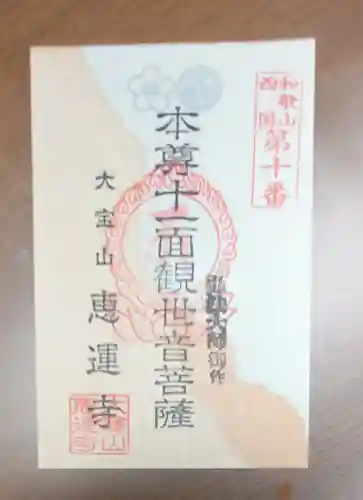 和歌山
西国
第十番
弘法大師御作
本尊十一面観世音菩薩
大宝山
恵運寺